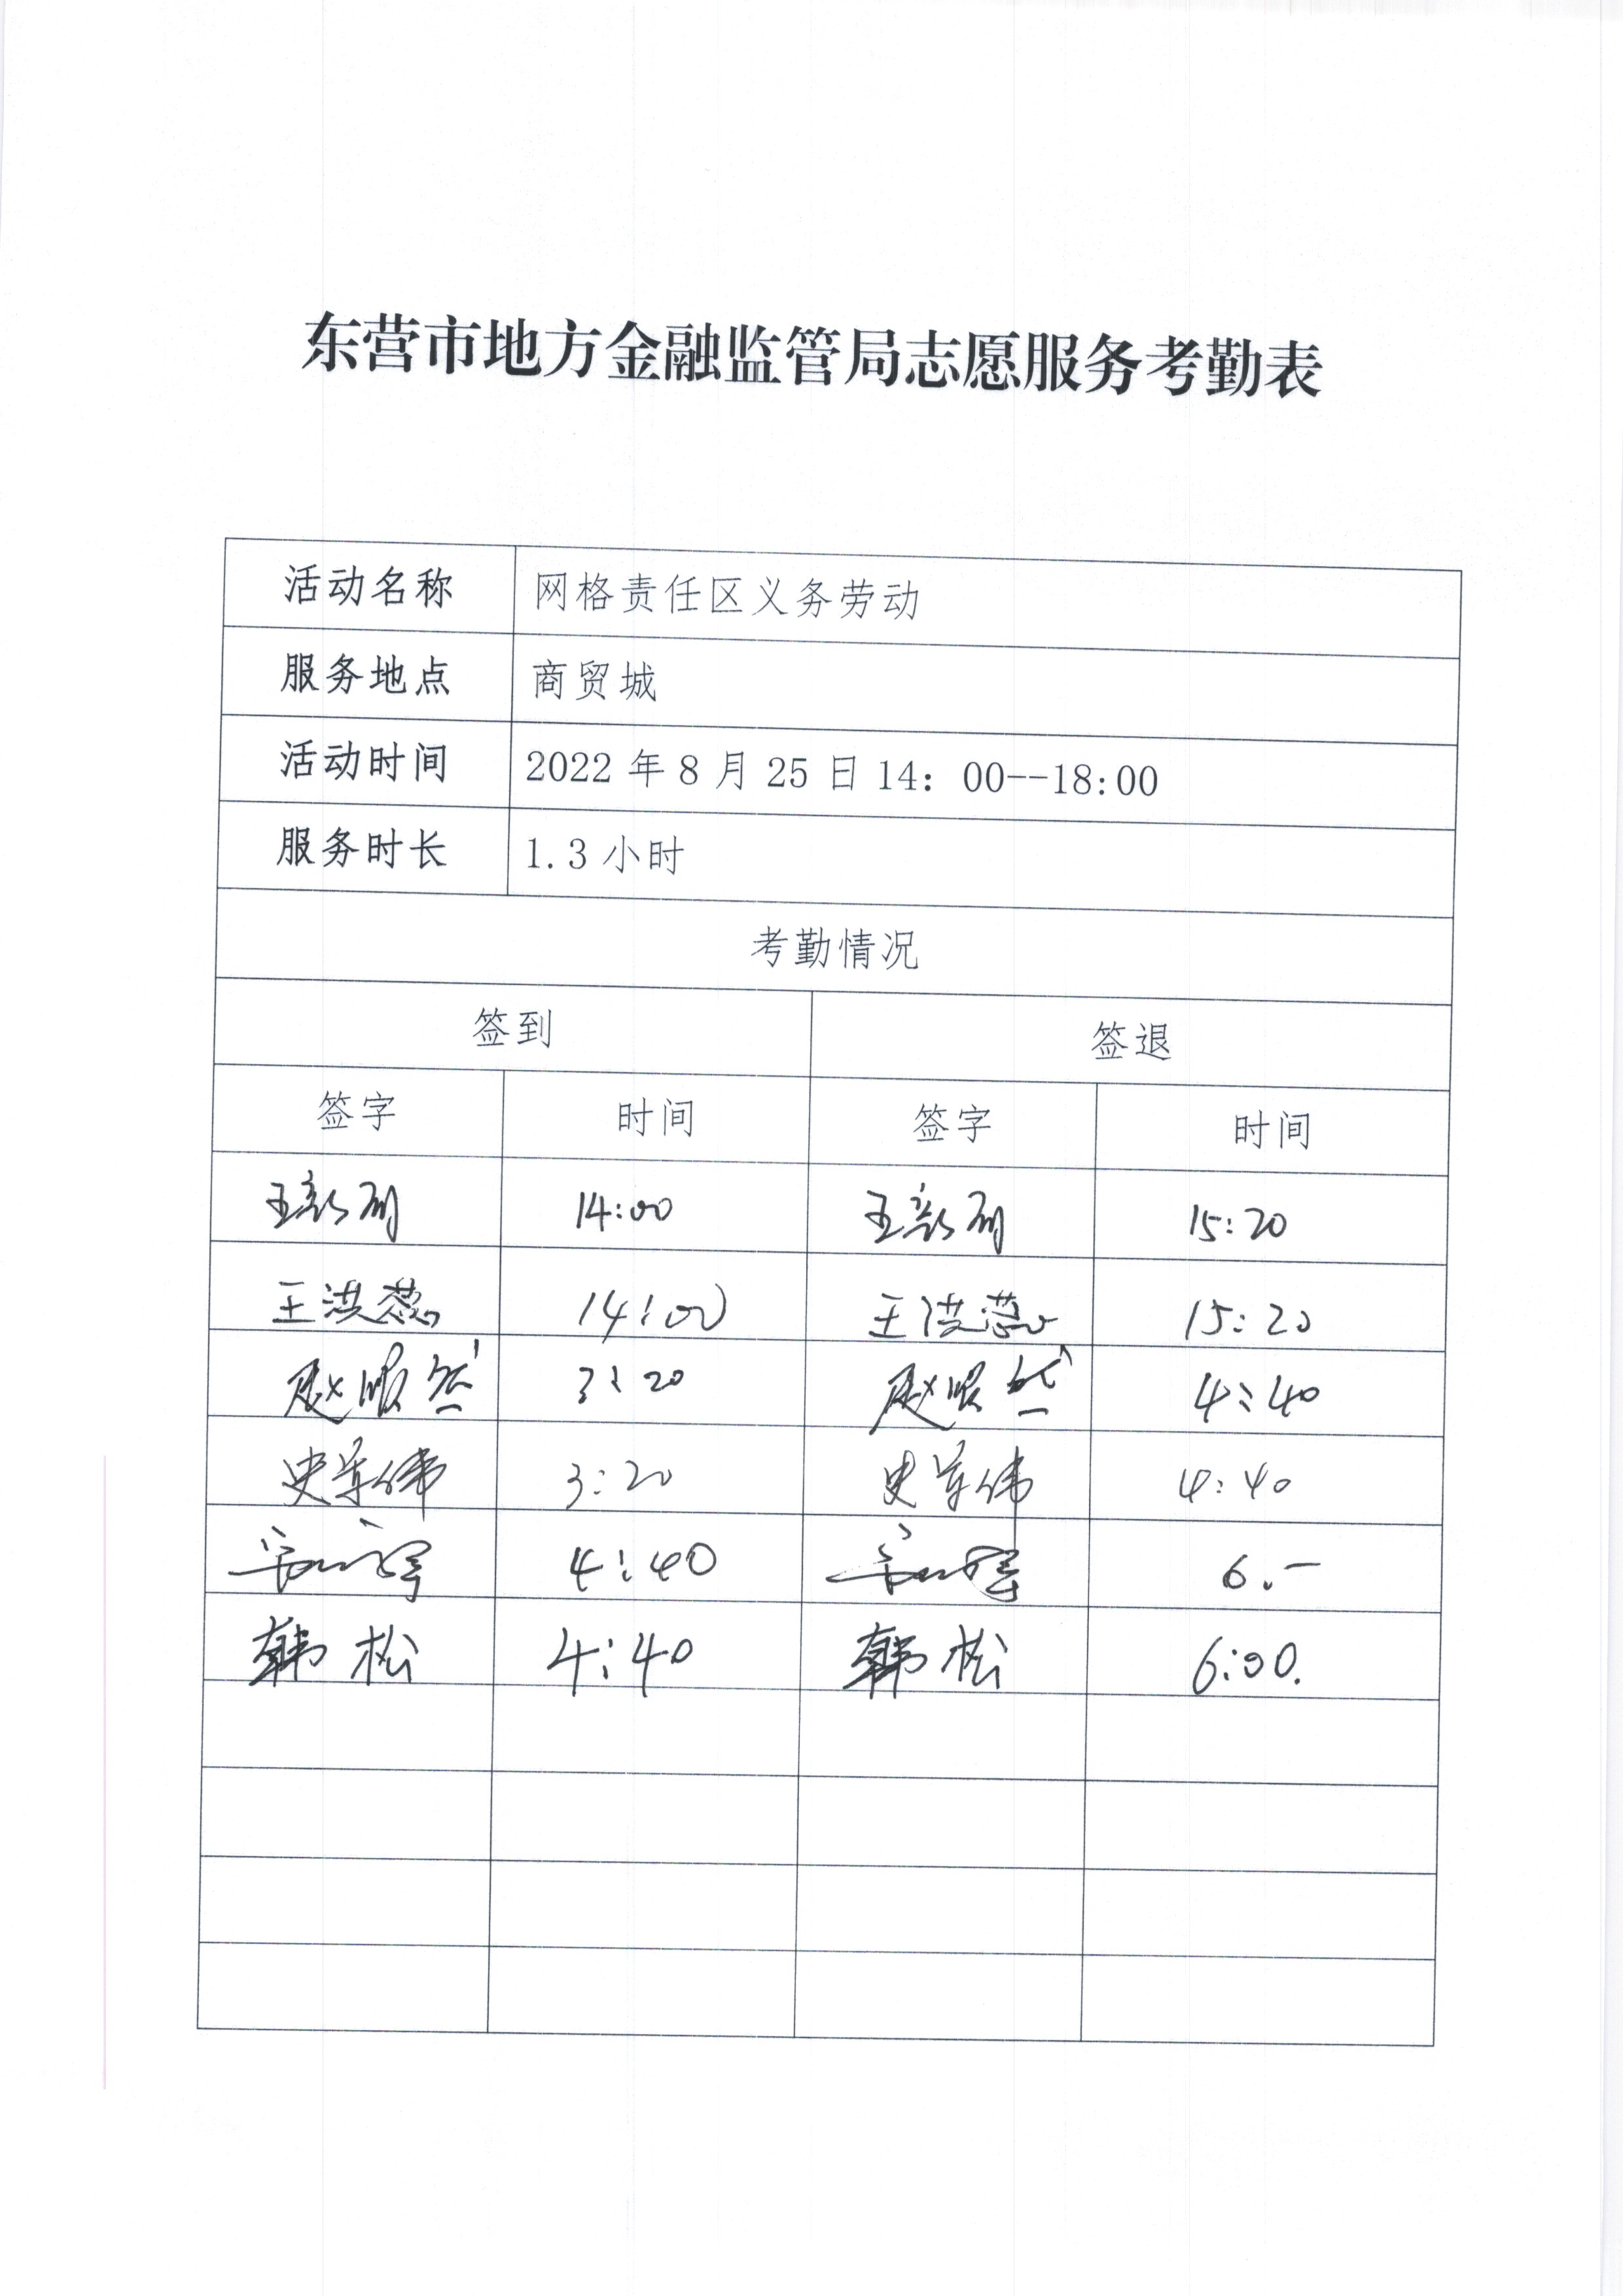 东营市地方金融监管局志愿服务考勤表
活动名称 网格责任区义务劳动
服务地点 商贸城
活动时间 2022 年 8 月 25 日 14：00--18:00
服务时长 1.3 小时
考勤情况
签到 签退
签字 时间 签字 时间
王 14:00 王 15:20
王洪蕊 14:00 王洪蕊 15:20
赵 3:20 赵 4:40
史军伟 3:20 史军伟 4:40
4:40 6.—
韩松 4:40 韩松 6:00.